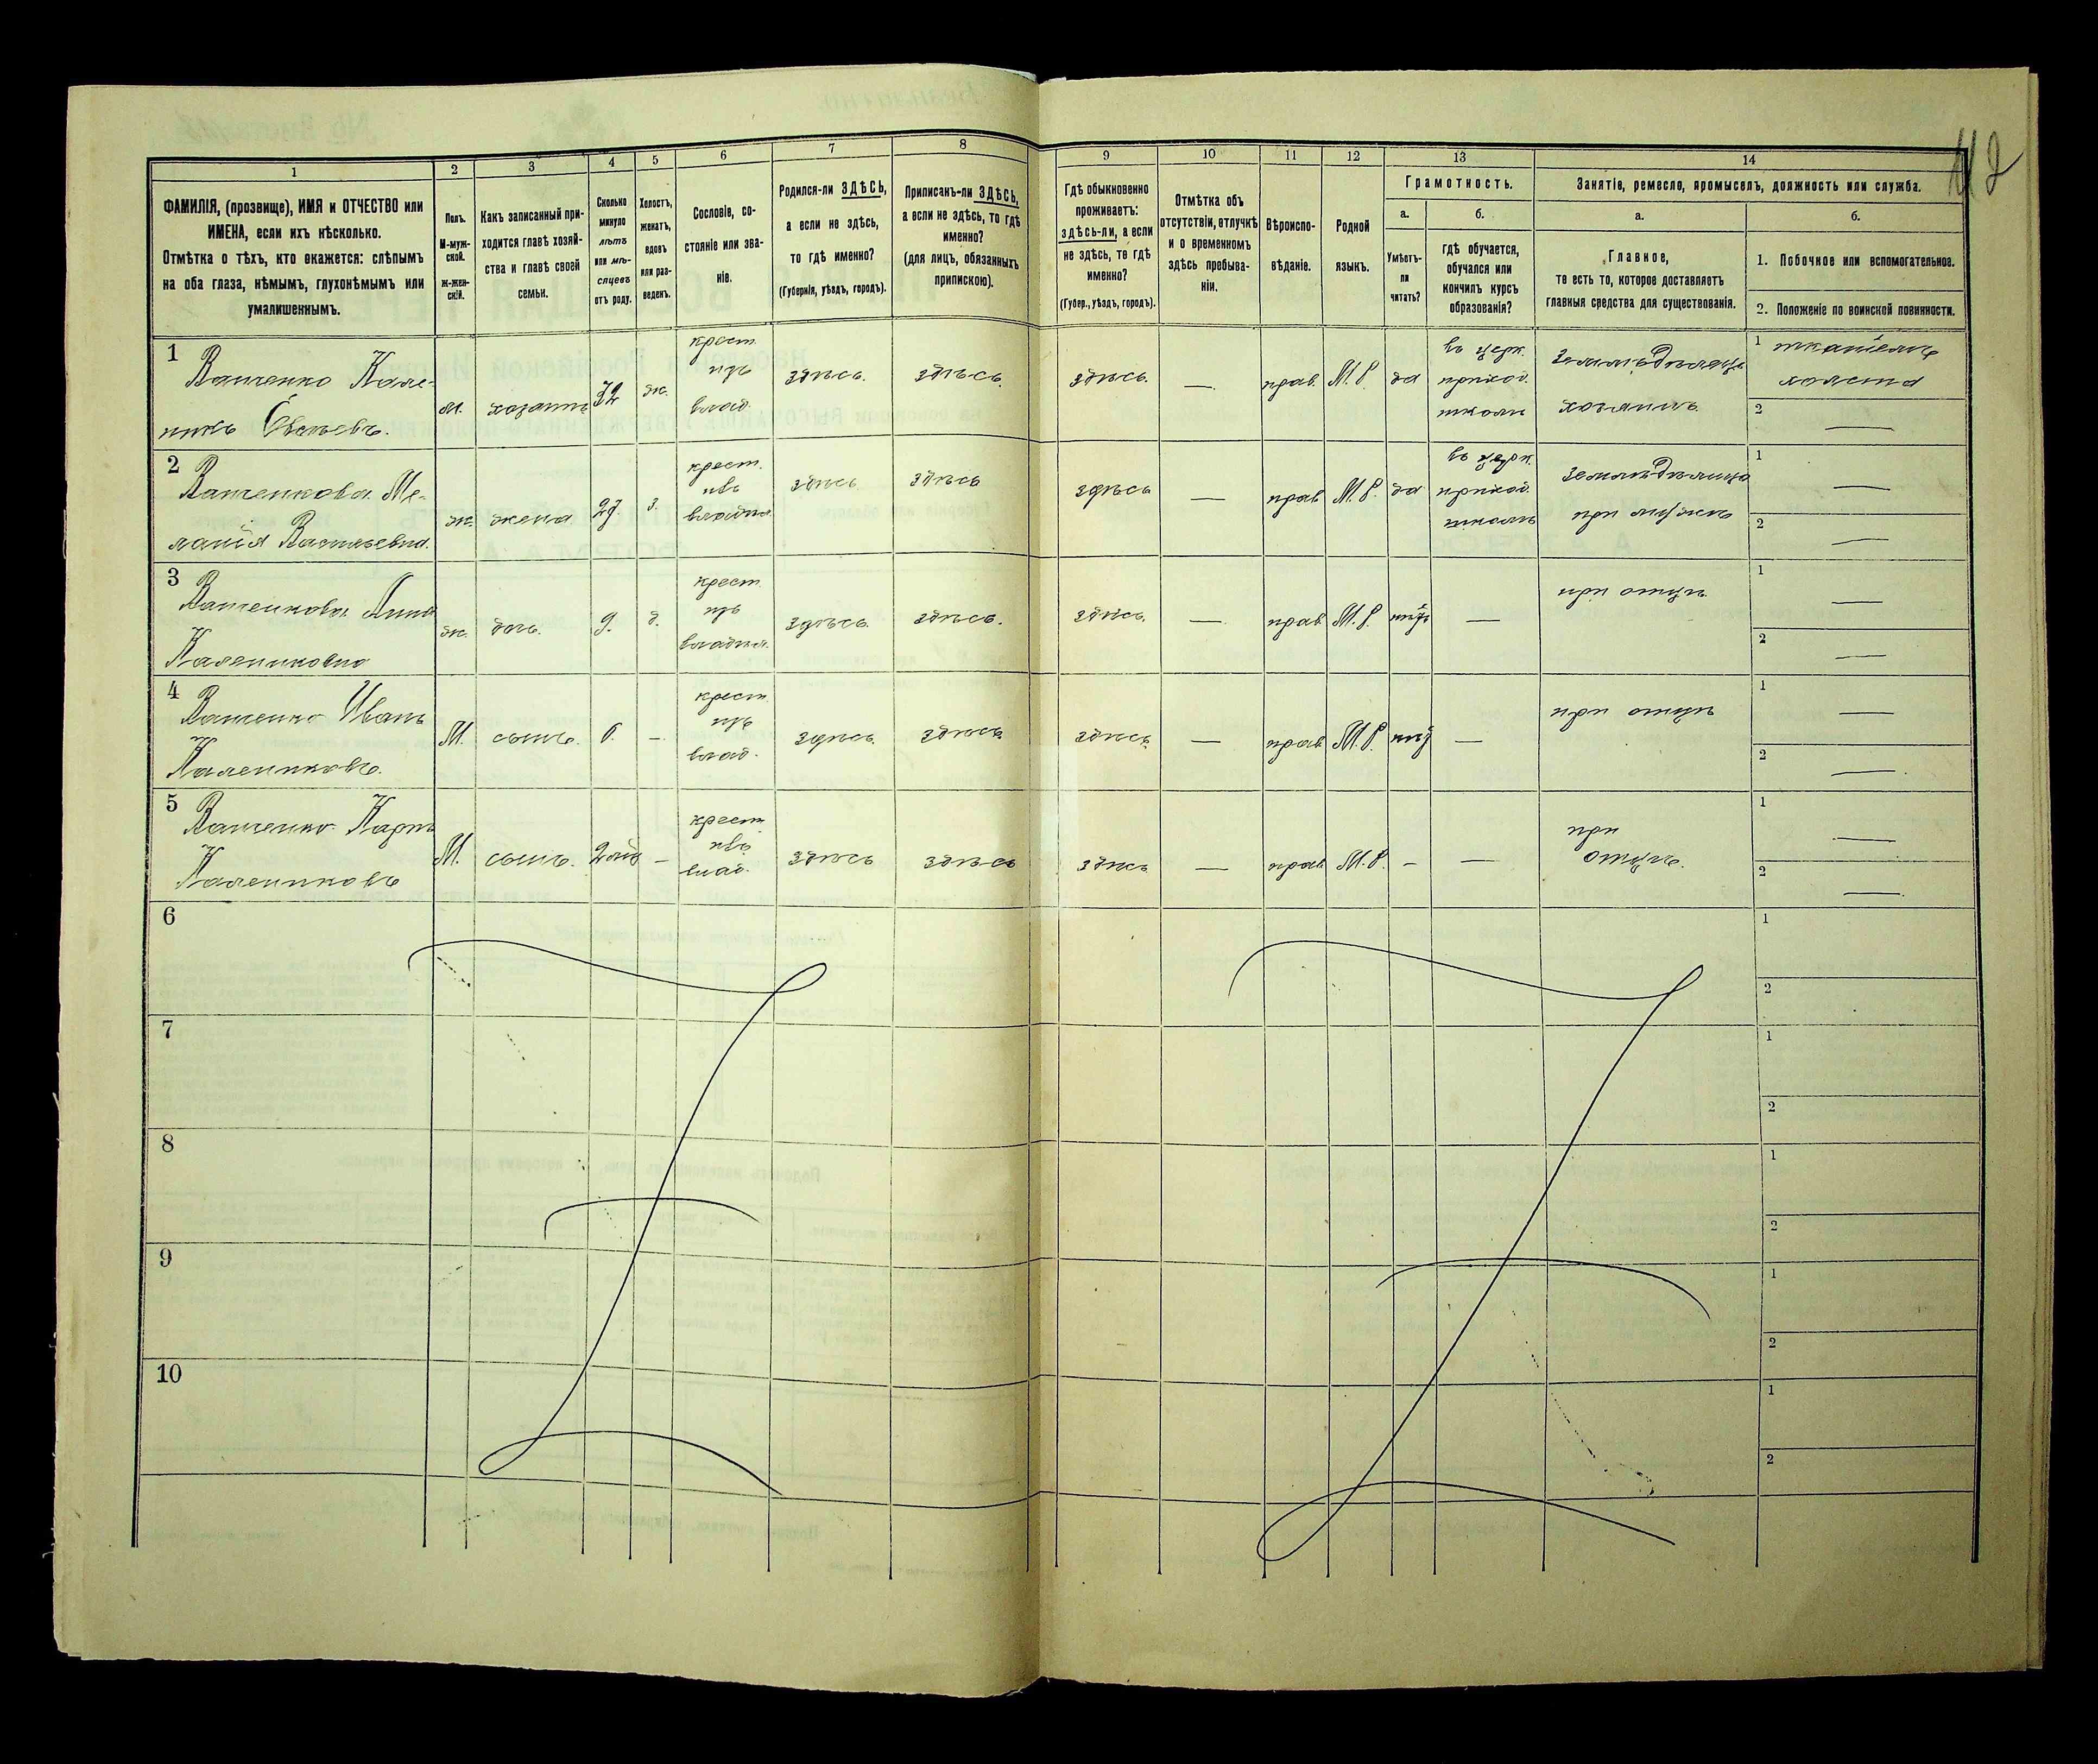 112
1
2
3
4
5
6
7
8
9
10
11
12
13
14
ФАМИЛІЯ, (прозвище), ИМЯ и ОТЧЕСТВО или
ИМЕНА, если ихъ нѣсколько.
Отмѣтка о тѣхъ, кто окажется: слѣпымъ
на оба глаза, нѣмымъ, глухонѣмымъ или
умалишеннымъ.
Полъ.
М-муж-
ской.
Ж-жен-
скій.
Какъ записанный при-
ходится главѣ хозяй-
ства и главѣ своей
семьи.
Сколько
минуло
лѣтъ
или мѣ-
сяцевъ
отъ роду.
Холостъ,
женатъ,
вдовъ
или раз-
веденъ.
Сословіе, со-
стояніе или зва-
ніе.
Родился-ли ЗДѢСЬ,
а если не здѣсь,
то гдѣ именно?
(Губернія, уѣздъ, городъ).
Приписанъ-ли ЗДѢСЬ,
а если не здѣсь, то гдѣ
именно?
(для лицъ, обязанныхъ
припискою).
Гдѣ обыкновенно
проживаетъ:
здѣсь-ли, а если
не здѣсь, то гдѣ
именно?
(Губер., уѣздъ, городъ).
Отмѣтка объ
отсутствіи, отлучкѣ
и о временномъ
здѣсь пребыва-
ніи.
Вѣроиспо-
вѣданіе.
Родной
языкъ.
Грамотность.
а.
Умѣетъ-
ли
читать?
б.
гдѣ обучается,
обучался или
кончилъ курсъ
образованія?
Занятіе, ремесло, промыселъ, должность или служба.
а.
Главное,
то есть то, которое доставляетъ
главныя средства для существованія.
б.
1. Побочное или вспомогательное.
2. Положеніе по воинской повинности.
1
Ващенко Кале-
никъ Евсѣевъ.
м.
хозяинъ
32
ж.
крест.
изъ
влад.
здѣсь.
здѣсь.
здѣсь.
—
прав.
М.Р.
да
въ церк.
приход.
школѣ
земледѣлецъ
хозяинъ
1
холста
2
—
2
Ващенкова Ме-
ланія Васильевна.
ж.
жена
з.
крест.
изъ
здѣсь
здѣсь
здѣсь
—
прав
М.Р.
да
въ церк.
приход.
школѣ
при мужѣ
1
—
2
—
3
Ващенкова Анна
Калениковна
ж.
дочь.
9.
д.
крест.
изъ
здѣсь.
здѣсь.
здѣсь.
—
прав
М.Р.
—
при отцѣ
1
—
2
—
4
Ващенко Иванъ
Калениковъ.
М.
сынъ.
—
крест
изъ
влад.
здѣсь.
здѣсь
здѣсь.
—
прав.
М.Р.
—
при отцѣ
1
—
2
—
5
Ващенко Карпъ
Калениковъ
М.
сынъ.
—
крест
изъ
влад.
здѣсь
здѣсь
здѣсь
—
прав
М.Р.
—
—
при
отцѣ.
1
—
2
—
6
1
2
7
1
2
8
1
2
9
1
2
10
1
2